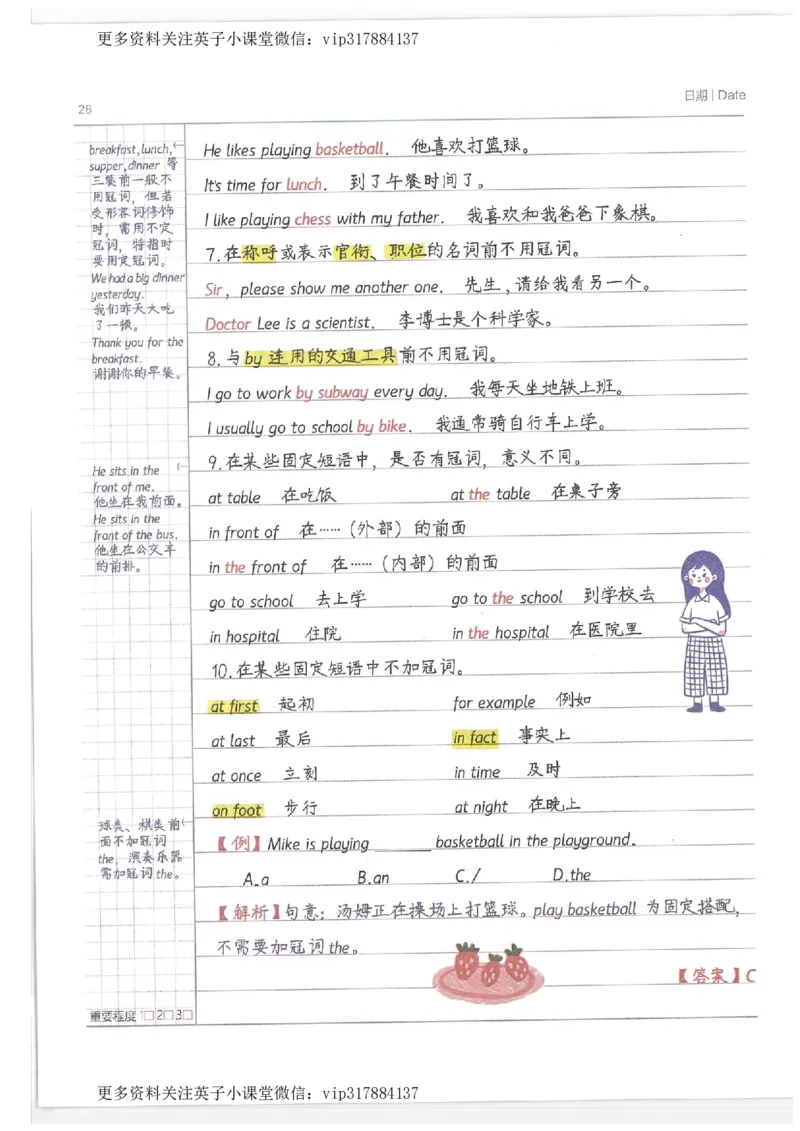 更多资料关注英子小课堂微信：vip317884137
日期 | Date
28
breakfast, lunch,
supper, dinner 等
三餐前一般不
用冠词，但若
受形容词修饰
时，需用不定
冠词，特指时
要用定冠词。
We had a big dinner
yesterday.
我们昨天大吃
了一顿。
Thank you for the
breakfast.
谢谢你的早餐。
He sits in the
front of me.
他坐在我前面。
He sits in the
front of the bus.
他坐在公交车
的前排。
球类、棋类前
面不加冠词
the，演奏乐器
需加冠词the。
重要程度 1□ 2□ 3□
He likes playing basketball. 他喜欢打篮球。
It's time for lunch. 到了午餐时间了。
I like playing chess with my father. 我喜欢和我爸爸下象棋。
7.在称呼或表示官衔、职位的名词前不用冠词。
Sir, please show me another one. 先生，请给我看另一个。
Doctor Lee is a scientist. 李博士是个科学家。
8.与by连用的交通工具前不用冠词。
I go to work by subway every day. 我每天坐地铁上班。
I usually go to school by bike. 我通常骑自行车上学。
9.在某些固定短语中，是否有冠词，意义不同。
at table 在吃饭 at the table 在桌子旁
in front of 在……（外部）的前面
in the front of 在……（内部）的前面
go to school 去上学 go to the school 到学校去
in hospital 住院 in the hospital 在医院里
10.在某些固定短语中不加冠词。
at first 起初 for example 例如
at last 最后 in fact 事实上
at once 立刻 in time 及时
on foot 步行 at night 在晚上
【例】Mike is playing ______ basketball in the playground.
A.a B.an C./ D.the
【解析】句意：汤姆正在操场上打篮球。play basketball 为固定搭配，
不需要加冠词the。
【答案】C
更多资料关注英子小课堂微信：vip317884137